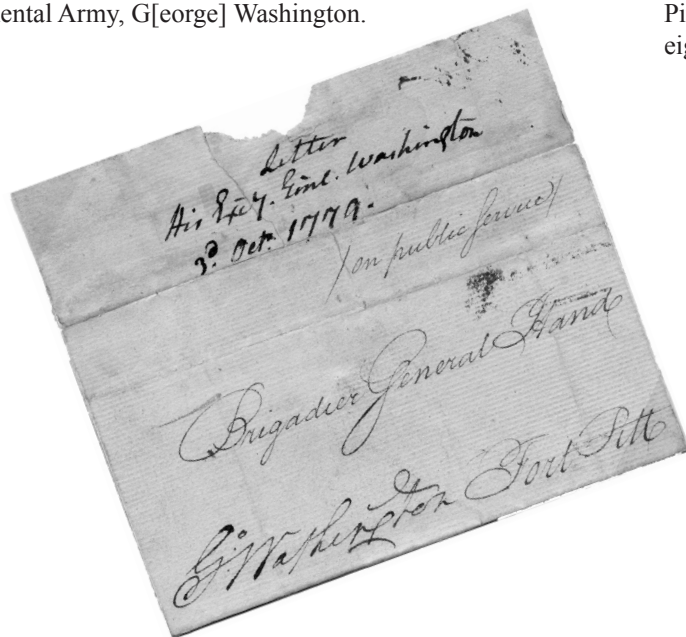 ental Army, G[eorge] Washington.
Pi
eig
Letter
His Exc'y. Genl. Washington
3d. Octr. 1779.
/on public service/
Brigadier General Hand
Go: Washington Fort Pitt